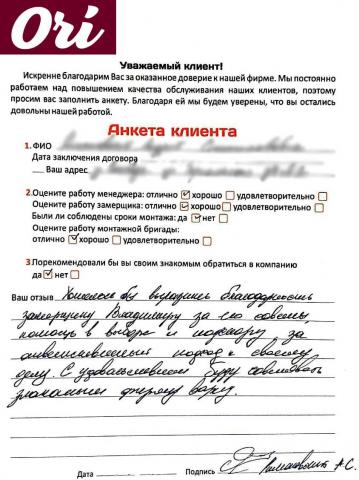 Ori
Уважаемый клиент!
Искренне благодарим Вас за оказанное доверие к нашей фирме. Мы постоянно
работаем над повышением качества обслуживания наших клиентов, поэтому
просим вас заполнить анкету. Благодаря ей мы будем уверены, что вы остались
довольны нашей работой.
Анкета клиента
1. ФИО
Дата заключения договора
Ваш адрес
2. Оцените работу менеджера: отлично хорошо удовлетворительно
Оцените работу замерщика: отлично хорошо удовлетворительно
Были ли соблюдены сроки монтажа: да нет
Оцените работу монтажной бригады:
отлично хорошо удовлетворительно
3. Порекомендовали бы вы своим знакомым обратиться в компанию
да нет
Ваш отзыв Хотелось бы выразить благодарность
замерщику Владимиру за его советы
помощь в выборе и за
ответственный подход к своему
делу. С удовольствием буду советовать
знакомым фирму вашу.
Дата Подпись А.С.